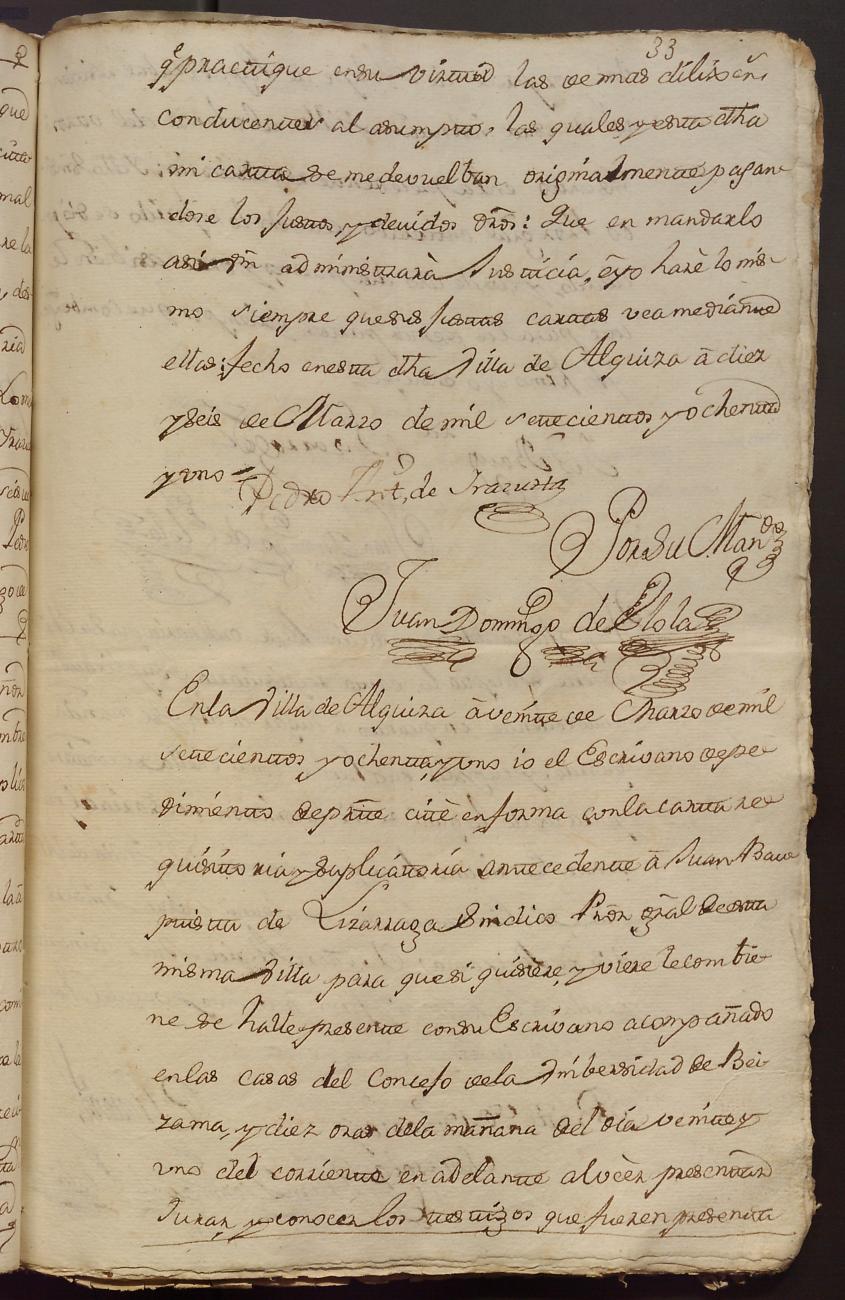 33
q.e practique en su virtud las demas dilixen.s
conducentes al asumpto, las quales y esta dha
mi carta se me devuelban originalmente pagan
dose los justos, y devidos dros: Que en mandarlo
asi Vm administrarà Justicia, è yo harè lo mis-
mo siempre que sus justas cartas vea mediante
ellas: fecho en esta dha Villa de Alquiza à diez
y seis de Marzo de mil setecientos y ochenta
y uno =
Pedro Ant.o de Irazusta
Por su Man.do
Juan Domingo de Elola
En la Villa de Alquiza à veinte de Marzo de mil
setecientos y ochenta, y uno io el Escrivano de pe-
dimento de prte citè en forma con la carta re-
quisitoria y suplicatoria antecedente à Juan Bau
puista de Lizarraga Sindico Pror gral de esta
misma Villa para que si quisiere, y viere le combie-
ne se halle presente con su Escrivano acompañado
en las casas del Concejo de la Vnibersidad de Bei-
zama, y diez oras de la mañana del dia veinte y
uno del corriente en adelante al veer presentar
Jurar, y conocer los testigos que fueren presenta